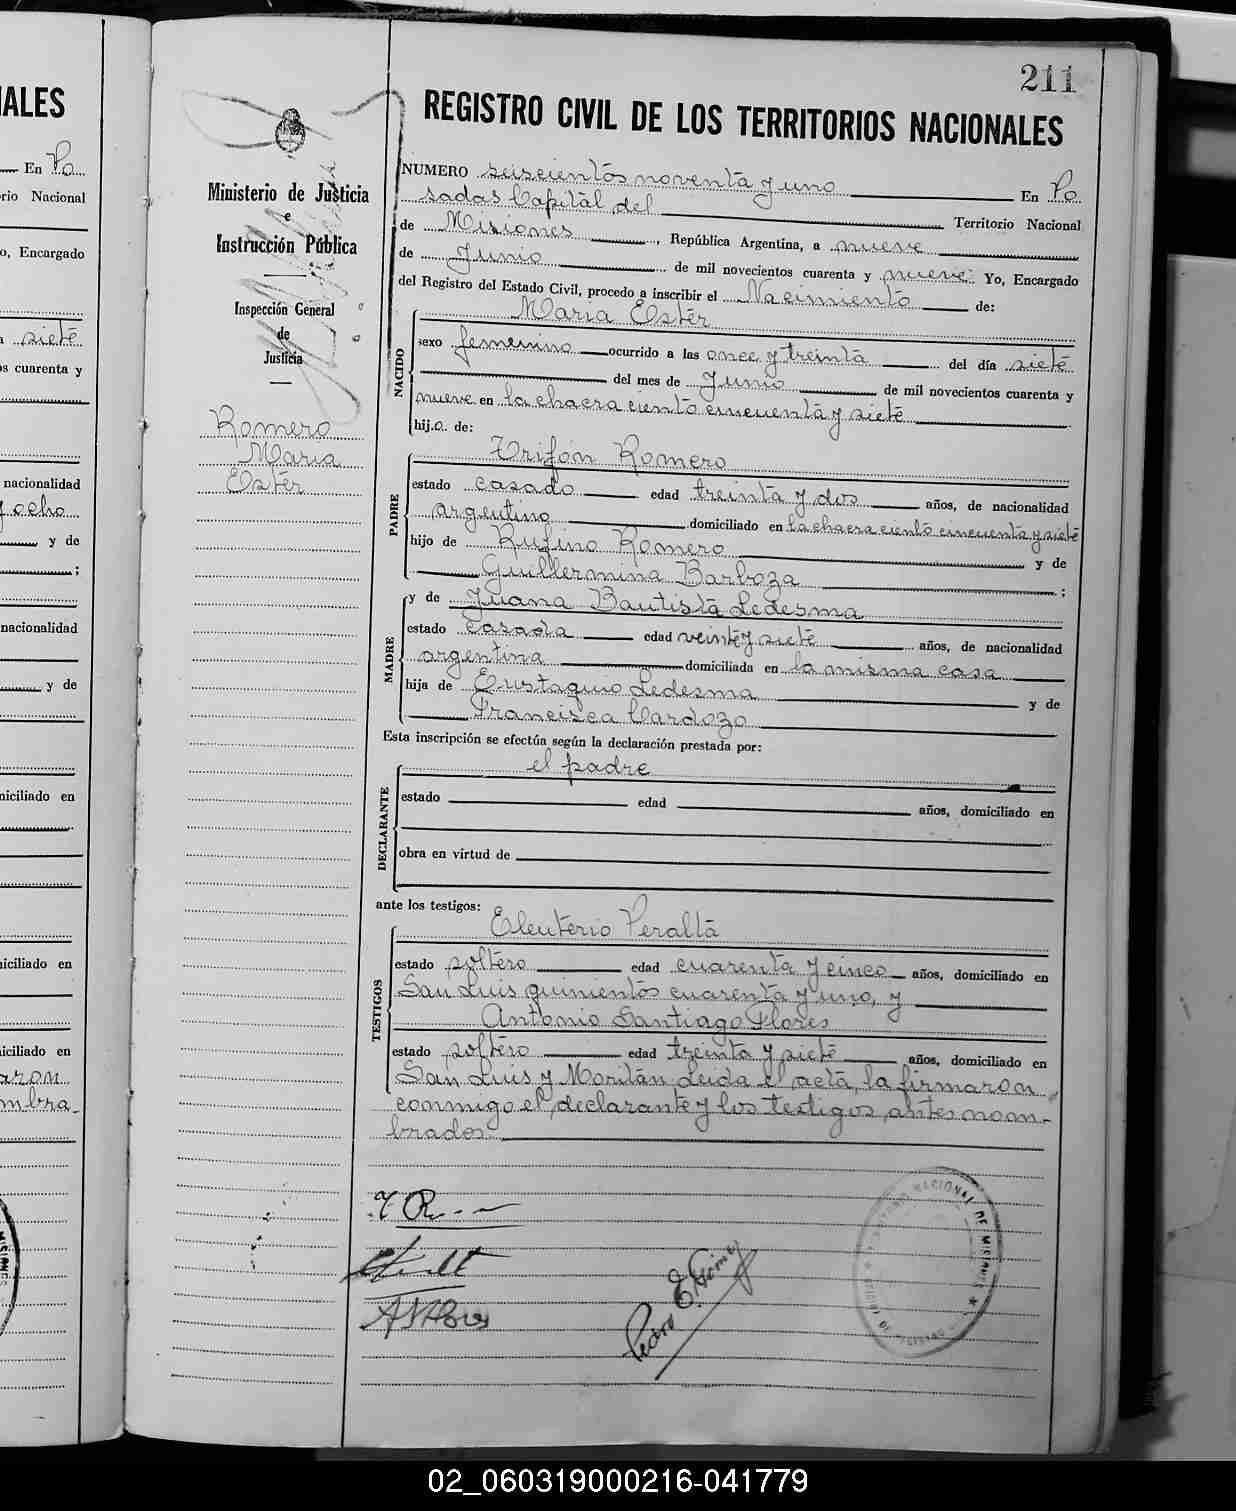 211
REGISTRO CIVIL DE LOS TERRITORIOS NACIONALES
Ministerio de Justicia
e
Instrucción Pública
Inspección General
de
Justicia
Romero
María
Ester
NUMERO seiscientos noventa y uno En Po
sadas Capital del Territorio Nacional
de Misiones, República Argentina, a nueve
de Junio de mil novecientos cuarenta y nueve: Yo, Encargado
del Registro del Estado Civil, procedo a inscribir el Nacimiento de:
María Ester
NACIDO
sexo femenino ocurrido a las once y treinta del día siete
del mes de Junio de mil novecientos cuarenta y
nueve en la chacra ciento cincuenta y siete
hij.a. de:
Trifón Romero
PADRE
estado casado edad treinta y dos años, de nacionalidad
argentino domiciliado en la chacra ciento cincuenta y siete
hijo de Rufino Romero y de
Guillermina Barboza ;
y de Juana Bautista Ledesma
MADRE
estado casada edad veinte y siete años, de nacionalidad
argentina domiciliada en la misma casa
hija de Eustaquio Ledesma y de
Francisca Cardozo
Esta inscripción se efectúa según la declaración prestada por:
el padre
DECLARANTE
estado edad años, domiciliado en
obra en virtud de
ante los testigos:
Eleuterio Peralta
TESTIGOS
estado soltero edad cuarenta y cinco años, domiciliado en
San Luis quinientos cuarenta y uno, y
Antonio Santiago Flores
estado soltero edad treinta y siete años, domiciliado en
San Luis y Moritán, Leida el acta, la firmaron
conmigo el declarante y los testigos antes nom-
brados.
NACIONAL DE MISIONES
IALES
En Po
rio Nacional
o, Encargado
siete
s cuarenta y
nacionalidad
y ocho
y de
;
nacionalidad
y de
niciliado en
iciliado en
iciliado en
aron
mbra-
02_060319000216-041779